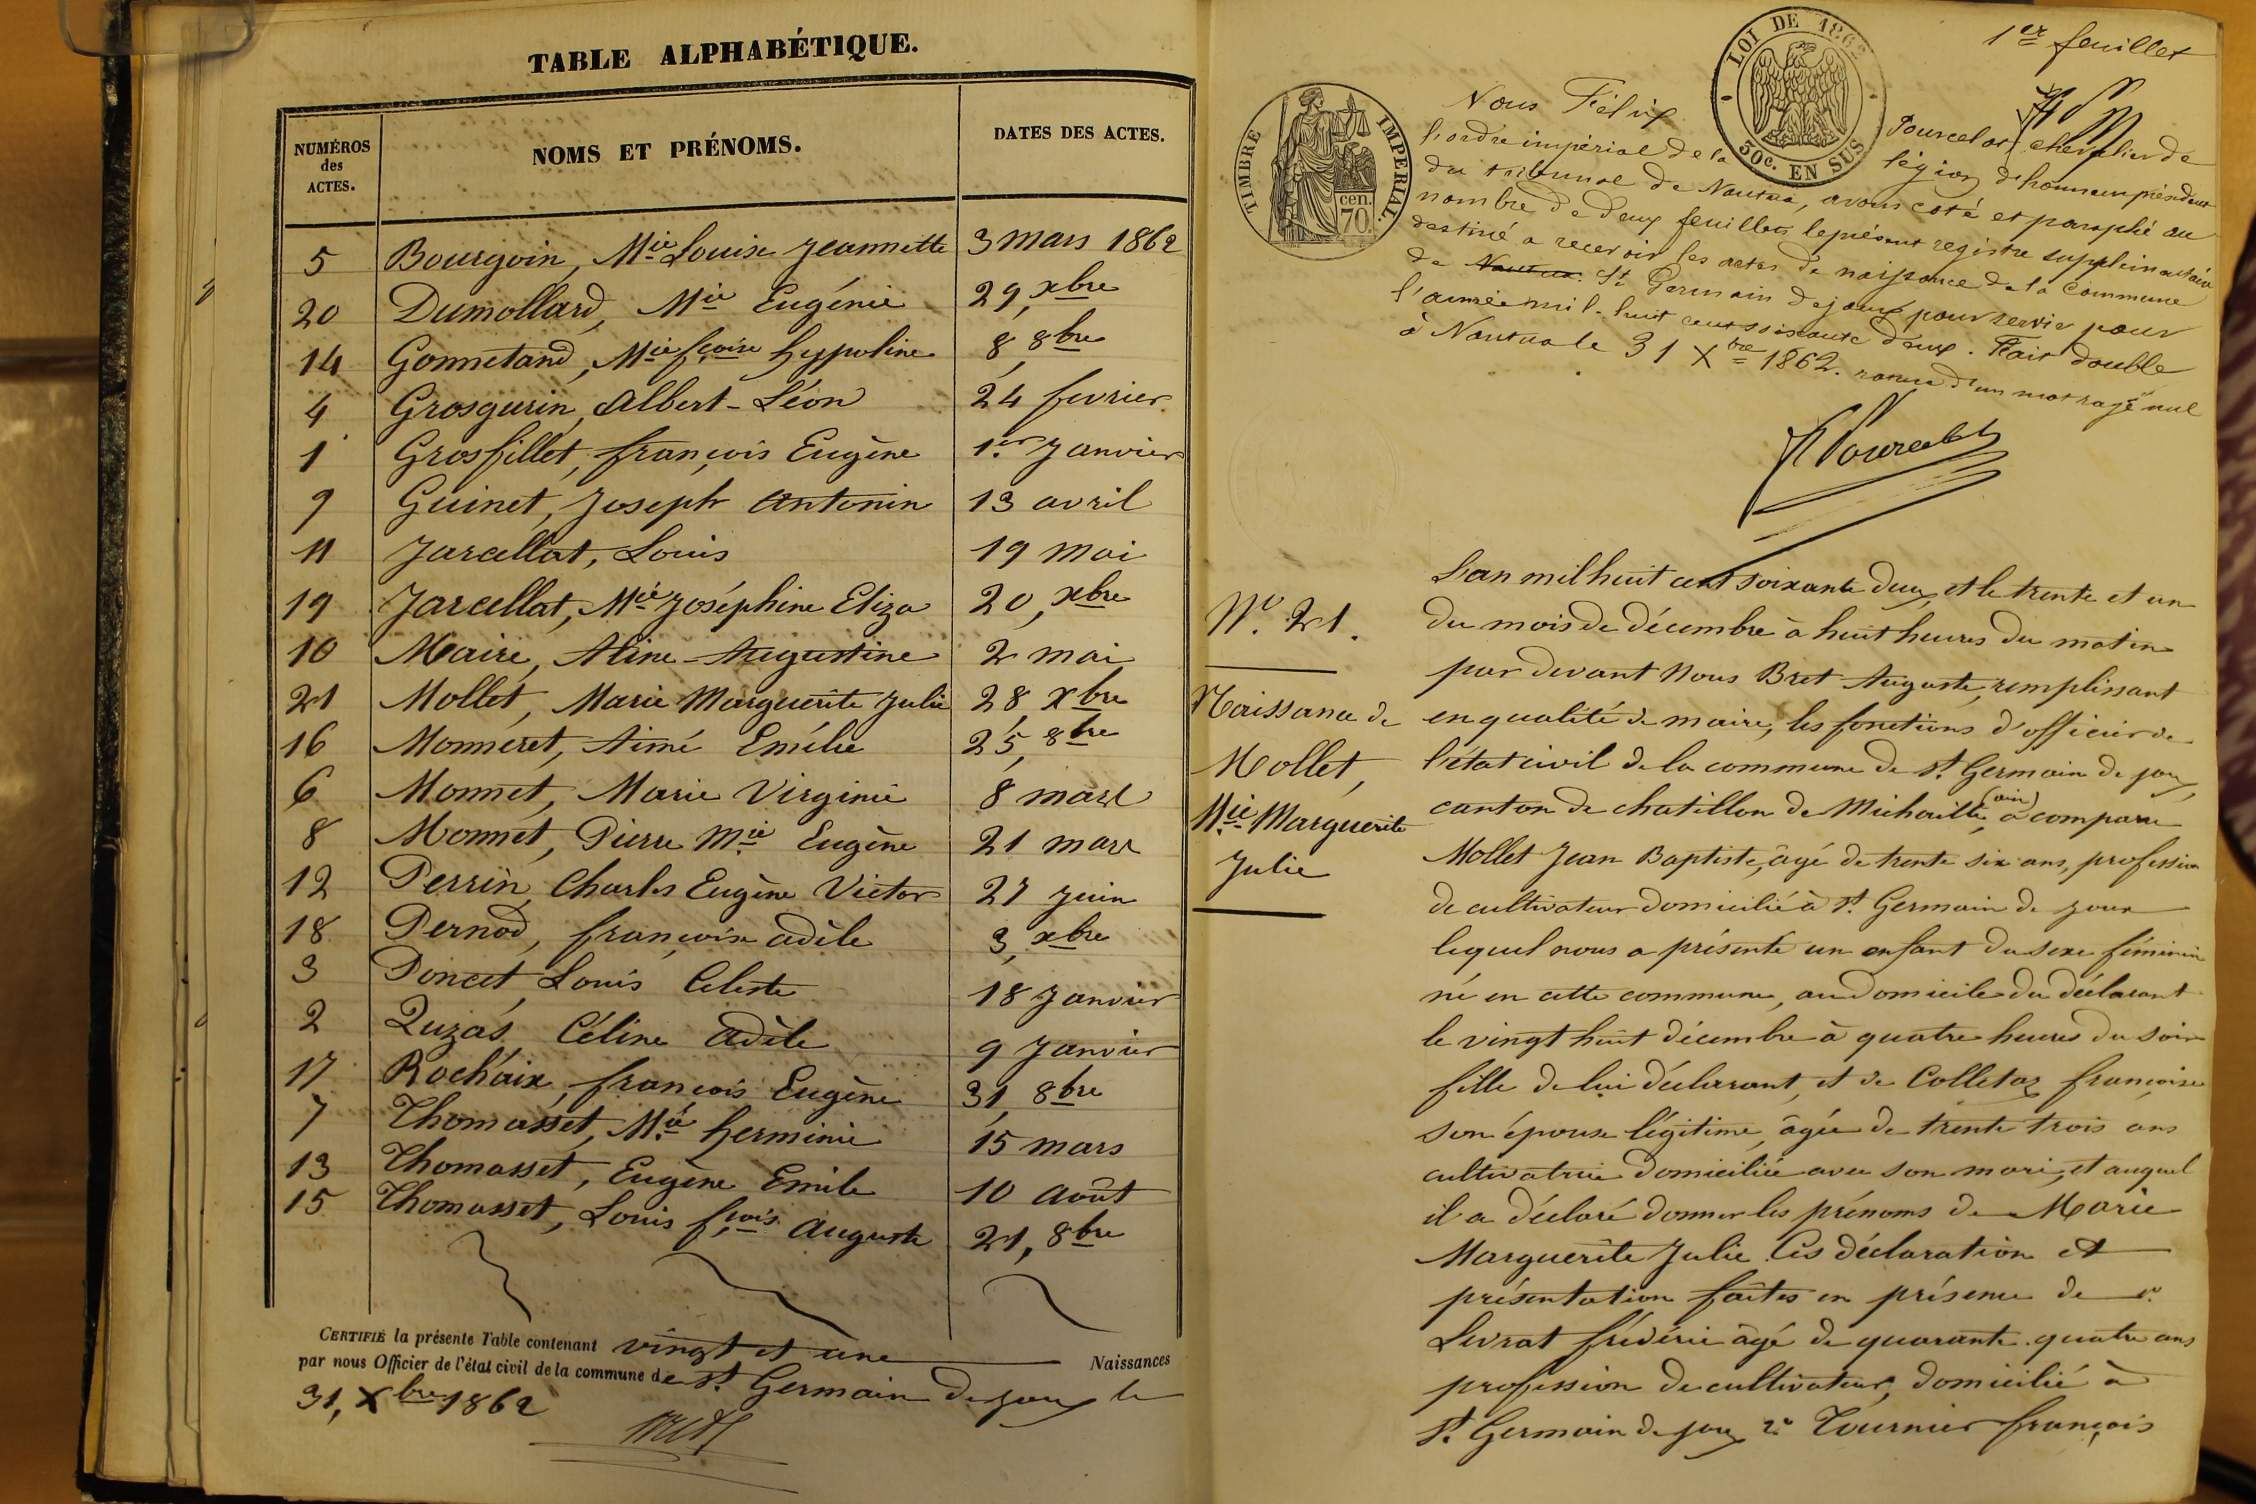 TABLE ALPHABÉTIQUE.
NUMÉROS des ACTES. NOMS ET PRÉNOMS. DATES DES ACTES.
5 Bourgoin, Mie Louise Jeannette 3 mars 1862
20 Dumollard, Mie Eugénie 29, xbre
14 Gonnetand, Mie fçoise hyppoline 8, 8bre
4 Grosgurin, Albert-Léon 24 fevrier
1 Grosfillet, françois Eugène 1er Janvier
9 Guinet, Joseph Antonin 13 avril
11 Jarcellat, Louis 19 Mai
19 Jarcellat, Mie Joséphine Eliza 20, xbre
10 Maire, Aline-Augustine 2 mai
21 Mollet, Marie Marguerite Julie 28, xbre
16 Monneret, Aimé Emélie 25, 8bre
6 Monnet, Marie Virginie 8 mars
8 Monnet, Pierre Mie Eugène 21 mars
12 Perrin, Charles Eugène Victor 27 juin
18 Pernod, françoise adèle 3, xbre
3 Poncet, Louis Celeste 18 Janvier
2 Quzas, Céline Adèle 9 Janvier
17 Rochaix, françois Eugène 31, 8bre
7 Thomasset, Mie herminie 15 mars
13 Thomasset, Eugène Emile 10 Août
15 Thomasset, Louis fçois auguste 21, 8bre
CERTIFIÉ la présente Table contenant vingt et une Naissances
par nous Officier de l'état civil de la commune de St Germain de joux le
31, Xbre 1862
LOI DE 1862
50c. EN SUS
TIMBRE IMPÉRIAL.
cen. 70.
1er feuillet
Nous Félix Pourcelot, chevalier de
l'ordre impérial de la légion d'honneur président
du tribunal de Nantua, avons coté et paraphé au
nombre de deux feuillets le présent registre supplémentaire
destiné a recevoir les actes de naissance de la Commune
de Nantua. St Germain de joux pour servir pour
l'année mil-huit cent soixante deux. Fait double
à Nantua le 31 Xbre 1862. rature d'un mot rayé nul
Pourcelot
No. 21.
Naissance de
Mollet,
Mie Marguerite
Julie
L'an mil huit cent soixante deux, et le trente et un
du mois de décembre à huit heures du matin
par devant Nous Bret Auguste, remplissant
en qualité de maire, les fonctions d'officier de
l'état civil de la commune de St. Germain de joux,
canton de chatillon de Michaille, (ain) a comparu
Mollet Jean Baptiste, âgé de trente six ans, profession
de cultivateur domicilié à St. Germain de joux
lequel nous a présenté un enfant du sexe féminin
né en cette commune, au domicile du déclarant
le vingt huit décembre à quatre heures du soir
fille de lui déclarant, et de Colletaz françoise
son épouse légitime, âgée de trente trois ans
cultivatrice domiciliée avec son mari, et auquel
il a déclaré donner les prénoms de Marie
Marguerite Julie. Ces déclaration et
présentation faites en présence de 1o.
Levrat frédéric âgé de quarante-quatre ans
profession de cultivateur, domicilié à
St. Germain de joux 2o Tournier françois